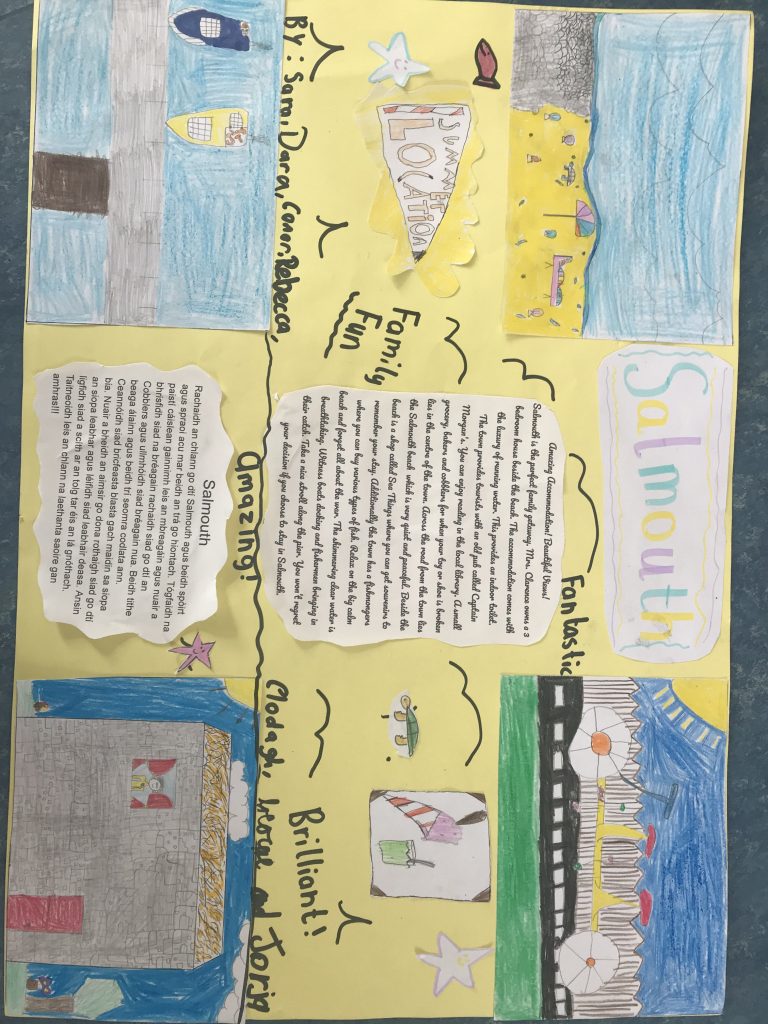 Salmouth
Fantastic
SUMMER
LOCATION
Family
Fun
Amazing Accommodation! Beautiful Views!
Salmouth is the perfect family getaway. Mrs. Clarence owns a 3
bedroom house beside the beach. The accommodation comes with
the luxury of running water. This provides an indoor toilet.
The town provides tourists with an old pub called Captain
Morgan's. You can enjoy reading in the local library. A small
grocery, bakers and cobblers for when your toy or shoe is broken
lies in the centre of the town. Across the road from the town lies
the Salmouth beach which is very quiet and peaceful. Beside the
beach is a shop called Sea Things where you can get souvenirs to
remember your stay. Additionally this town has a fishmongers
where you can buy various types of fish. Relax on the big calm
beach and forget all about the war. The shimmering clear water is
breathtaking. Witness boats docking and fishermen bringing in
their catch. Take a nice stroll along the pier. You won't regret
your decision if you choose to stay in Salmouth.
Brilliant!
Amazing!
BY: Sara, Dara, Conor, Rebecca,
Clodagh, George and Jorja
Salmouth
Rachaidh an chlann go dtí Salmouth agus beidh spóirt
agus spraoi acu mar beidh an trá go hiontach. Tógfaidh na
paistí cáislean gainnimh leis an mbreagáin agus nuair a
bhrisfidh siad na bréagain rachaidh siad go dtí an
Cobblers agus ullmhóidh siad bréagain nua. Beidh tithe
beaga álainn agus beidh trí seomra codlata ann.
Ceannóidh siad bricfeasta blasta gach maidin sa siopa
bia. Nuair a bheidh an aimsir go dona rothaigh siad go dtí
an siopa leabhair agus léifidh siad leabhair deasa. Ansin
ligfidh siad a scíth ar an tolg tar éis an lá gnóthach.
Taitneoidh leis an chlann na laethanta saoire gan
amhras!!!